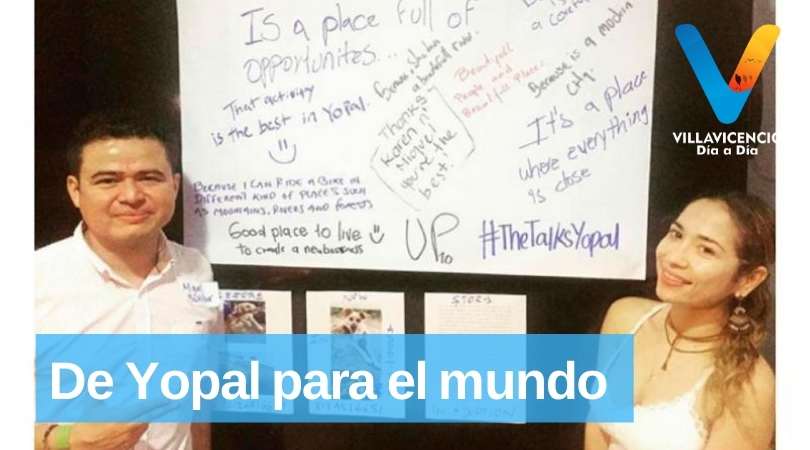 Is a place full of
opportunites...
That activity
is the best in Yopal.
BECAUSE I CAN RIDE A BIKE IN
DIFFERENT KIND OF PLACES SUCH
AS MOUNTAINS, RIVERS AND FORESTS
Good place to live
to create a new business
a beautiful
Thanks
Karen n'
Miguel!
you're the
best!
Beautifull
People and
Beautifull Place.
Because is a modern
city.
It's a place
where everything
is close
UP
to
#TheTalksYopal
VILLAVICENCIO
Día a Día
NOW
STORY
De Yopal para el mundo